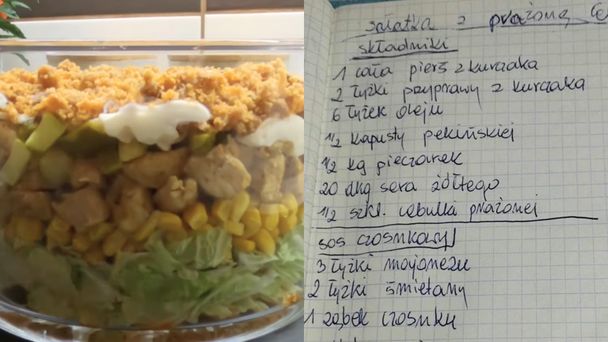 sałatka z prażoną C
składniki
1 cała pierś z kurczaka
2 łyżki przyprawy z kurczaka
6 łyżek oleju
1/2 kapusty pekińskiej
1/2 kg pieczarek
20 dkg sera żółtego
1/2 szkl. cebulki prażonej
sos czosnkowy
3 łyżki majonezu
2 łyżki śmietany
1 ząbek czosnku